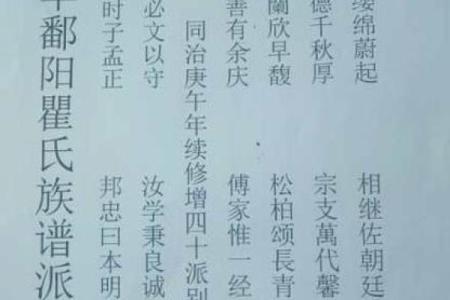 鄱阳瞿氏族谱派
时子孟正 邦忠曰本明
必文以守 汝学秉良诚
同治庚午年续修增四十派别
善有余庆 傅家惟一经
欣早馥 松柏颂長青
德千秋厚 宗支萬代馨
绵蔚起 相继佐朝廷